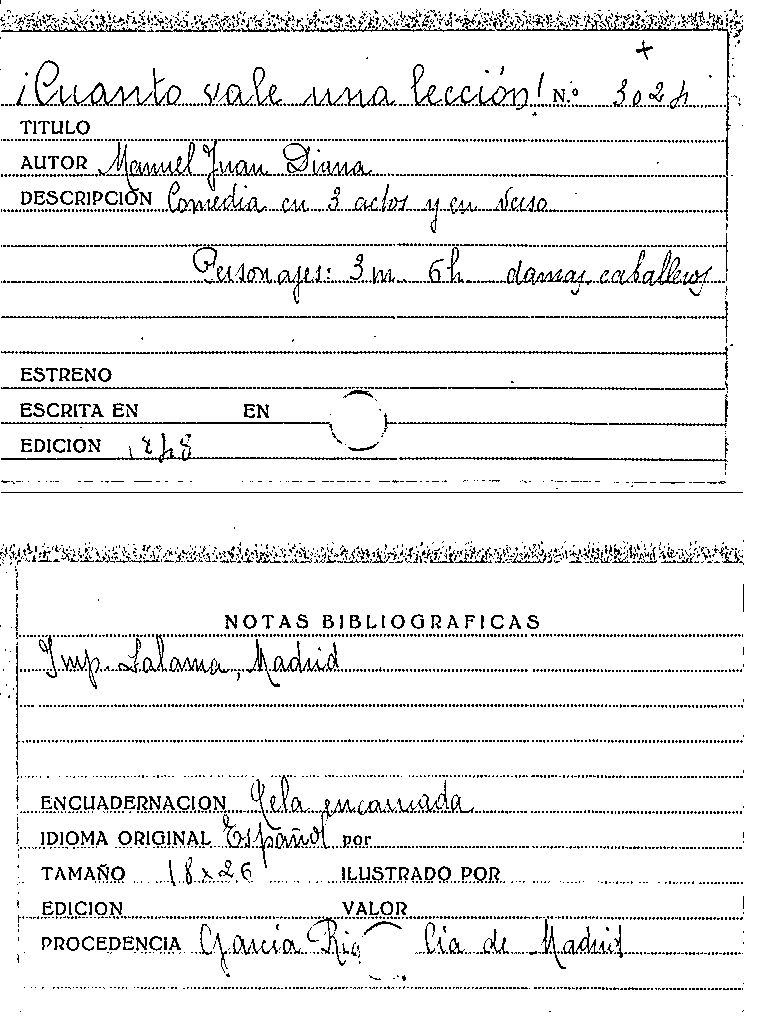 +
¡Cuanto vale una lección! N.º 3024
TITULO
AUTOR Manuel Juan Diana
DESCRIPCIÓN Comedia en 3 actos y en verso
Personajes: 3 m. 6 h. damas, caballeros
ESTRENO
ESCRITA EN EN
EDICION 1848
NOTAS BIBLIOGRAFICAS
Imp. Lalama, Madrid
ENCUADERNACION Tela encarnada
IDIOMA ORIGINAL Español por
TAMAÑO 18 x 26 ILUSTRADO POR
EDICION VALOR
PROCEDENCIA García Cía de Madrid